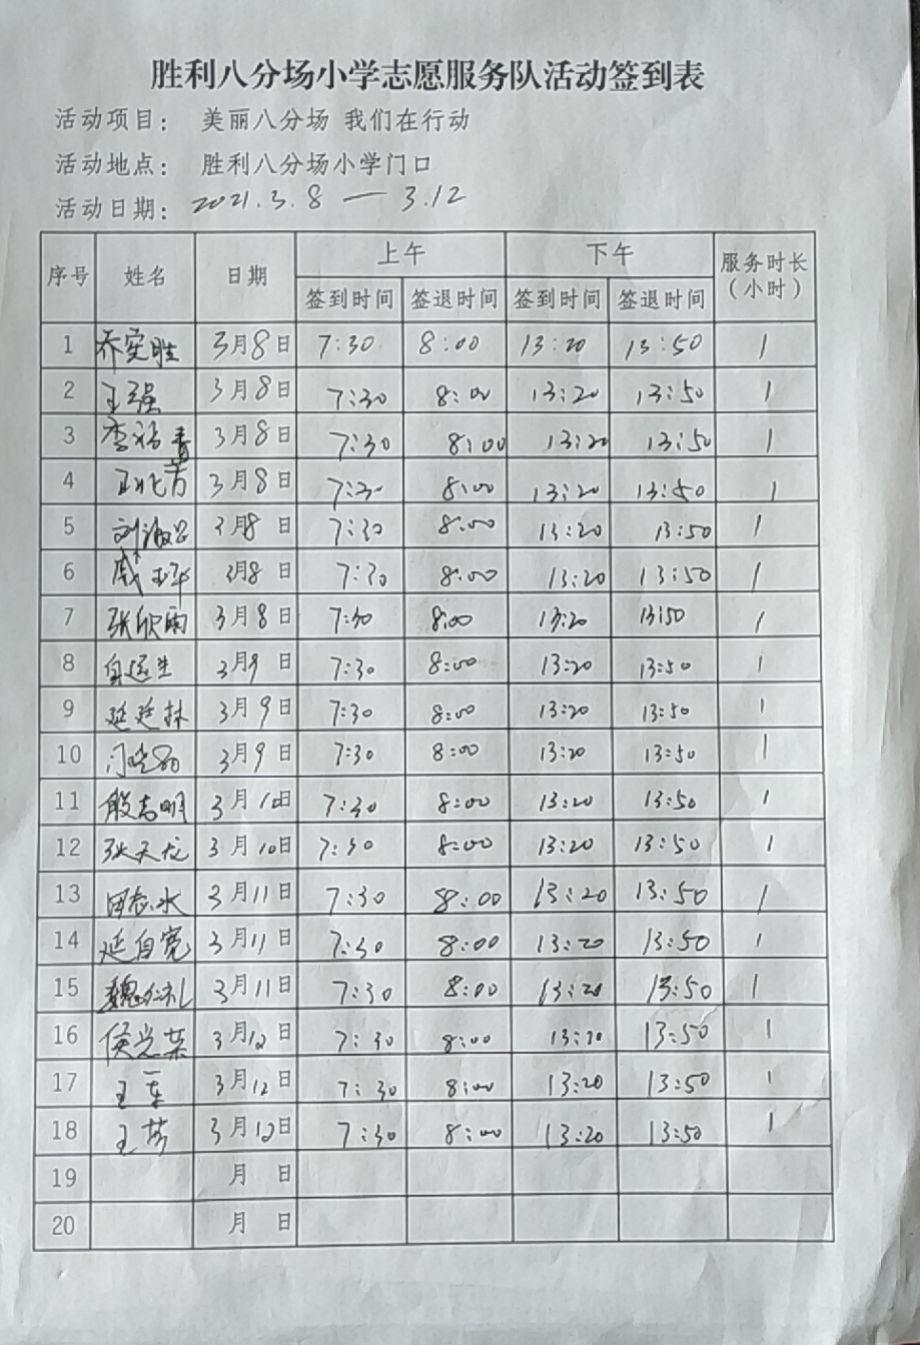 胜利八分场小学志愿服务队活动签到表
活动项目： 美丽八分场 我们在行动
活动地点： 胜利八分场小学门口
活动日期： 2021.3.8 — 3.12
序号 姓名 日期 上午 下午 服务时长（小时）
签到时间 签退时间 签到时间 签退时间
1 3月8日 7:30 8:00 13:20 13:50 1
2 王强 3月8日 7:30 8:00 13:20 13:50 1
3 3月8日 7:30 8:00 13:20 13:50 1
4 3月8日 7:30 8:00 13:20 13:50 1
5 3月8日 7:30 8:00 13:20 13:50 1
6 3月8日 7:30 8:00 13:20 13:50 1
7 张欣雨 3月8日 7:30 8:00 13:20 13:50 1
8 3月9日 7:30 8:00 13:20 13:50 1
9 延廷林 3月9日 7:30 8:00 13:20 13:50 1
10 3月9日 7:30 8:00 13:20 13:50 1
11 殷志明 3月10日 7:30 8:00 13:20 13:50 1
12 张天龙 3月10日 7:30 8:00 13:20 13:50 1
13 3月11日 7:30 8:00 13:20 13:50 1
14 延自宽 3月11日 7:30 8:00 13:20 13:50 1
15 3月11日 7:30 8:00 13:20 13:50 1
16 侯光荣 3月12日 7:30 8:00 13:20 13:50 1
17 3月12日 7:30 8:00 13:20 13:50 1
18 3月12日 7:30 8:00 13:20 13:50 1
19 月 日
20 月 日